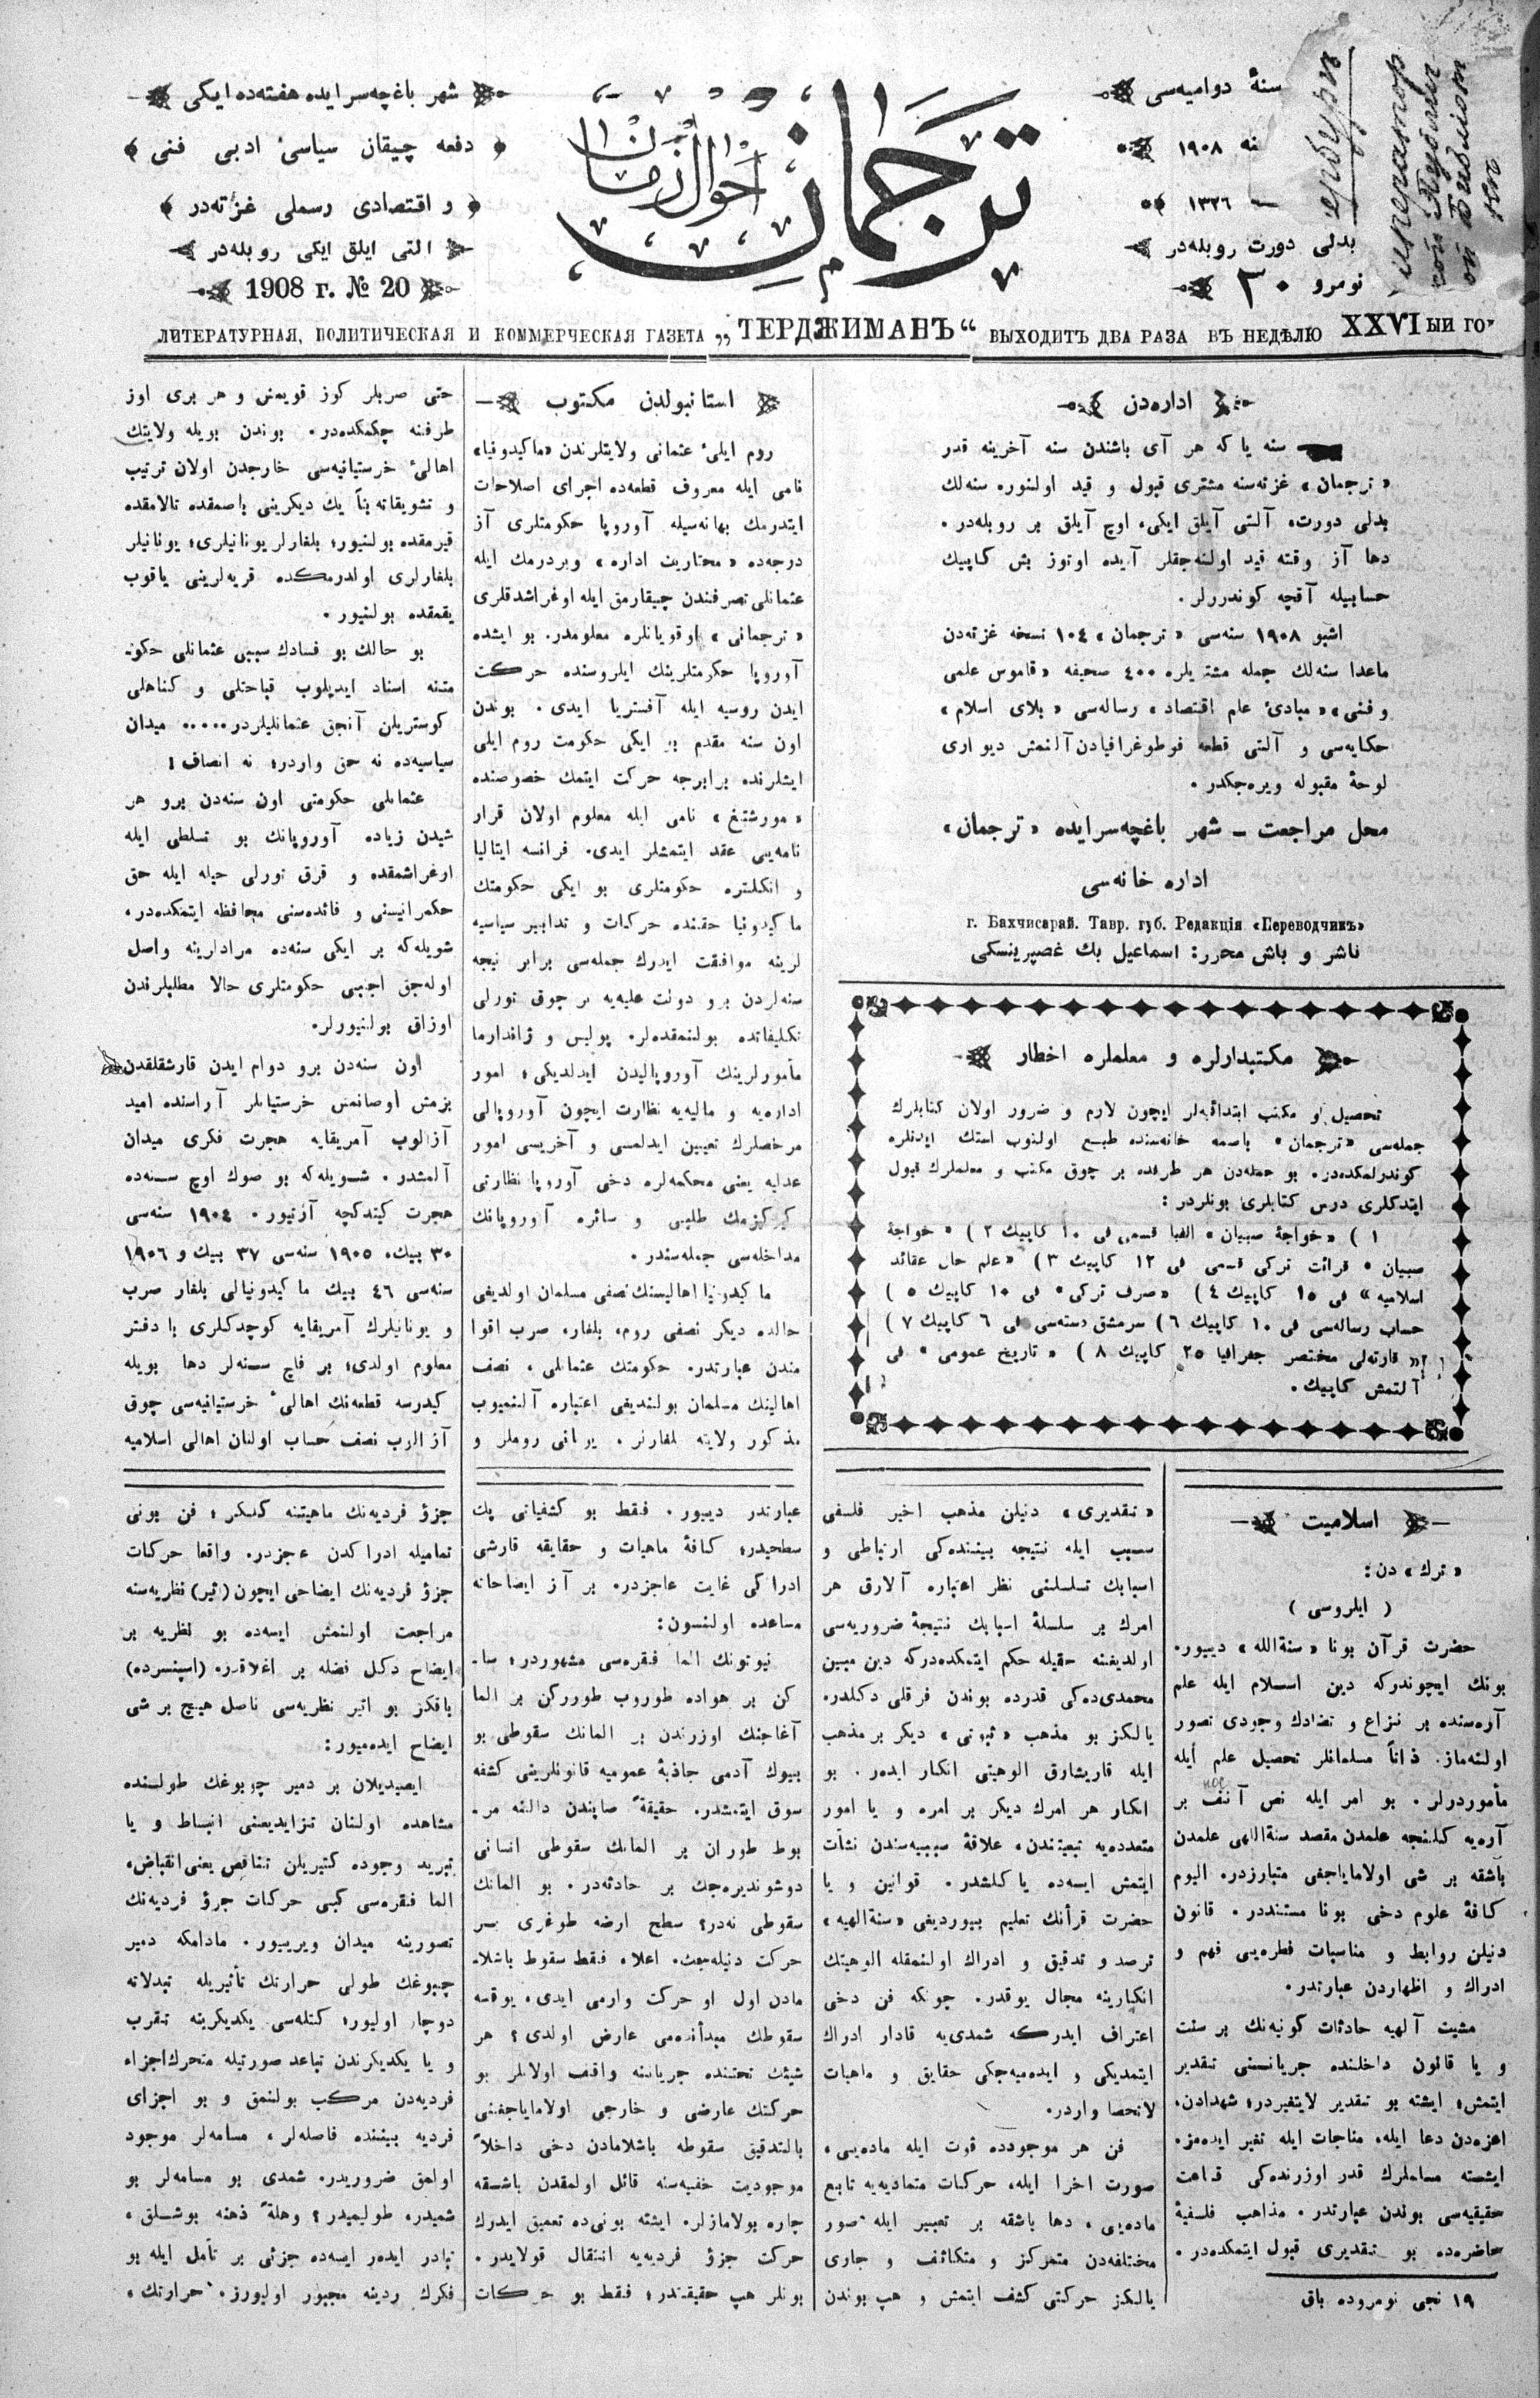 شهر باغچه‌سرایده هفته‌ده ایکی
دفعه چیقان سیاسئ ادبی فنی
و اقتصادی رسملی غزته‌در
التی ایلق ایکی روبله‌در
1908 г. № 20
ترجمان
احوال زمان
سنهٔ دوامیه‌سی
١٩٠٨
١٣٢٦
بدلی دورت روبله‌در
نومرو ٣٠
ЛИТЕРАТУРНАЯ, ПОЛИТИЧЕСКАЯ И КОММЕРЧЕСКАЯ ГАЗЕТА „ТЕРДЖИМАНЪ“ ВЫХОДИТЪ ДВА РАЗА ВЪ НЕДѢЛЮ XXVI ЫЙ ГО
اداره‌دن
سنه یا که هر آی باشندن سنه آخرینه قدر
« ترجمان » غزته‌سنه مشتری قبول و قید اولنوره سنه‌لك
بدلی دورت، آلتی آیلق ایکی، اوچ آیلق بر روبله‌در .
دها آز وقته قید اولنه‌جقلر آیده اوتوز بش کاپیك
حسابیله آقچه کوندررلر .
اشبو ١٩٠٨ سنه‌سی « ترجمان » ١٠٤ نسخه غزته‌دن
ماعدا سنه‌لك جمله مشتریلره ٤٠٠ صحیفه « قاموس علمی
و فنی » « مبادئ علم اقتصاد » رساله‌سی « بلای اسلام »
حکایه‌سی و آلتی قطعه فوطوغرافیادن آلنمش دیواری
لوحهٔ مقبوله ویره‌جکدر .
محل مراجعت ــ شهر باغچه‌سرایده « ترجمان »
اداره خانه‌سی
г. Бахчисарай. Тавр. губ. Редакція «Переводчикъ»
ناشر و باش محرر: اسماعیل بك غصپرینسکی
مکتبدارلره و معلملره اخطار
تحصیل و مکتب ابتدائیه‌لر ایچون لازم و ضرور اولان کتابلرك
جمله‌سی « ترجمان » باصمه خانه‌سنده طبع اولنوب استك ایدنلره
کوندرلمکده‌در. بو جمله‌دن هر طرفده بر چوق مکتب و معلملرك قبول
ایتدکلری درس کتابلری بونلردر :
١ ) « خواجهٔ صبیان » الفبا قسمی فی ١٠ کاپیك ٢ ) « خواجهٔ
صبیان » قرائت ترکی قسمی فی ١٢ کاپیك ٣ ) « علم حال عقائد
اسلامیه » فی ١٥ کاپیك ٤ ) « صرف ترکی » فی ١٠ کاپیك ٥ )
حساب رساله‌سی فی ١٠ کاپیك ٦ ) سرمشق دسته‌سی فی ٦ کاپیك ٧ )
قارته‌لی مختصر جغرافیا ٢٥ کاپیك ٨ ) « تاریخ عمومی » فی
آلتمش کاپیك .
استانبولدن مکتوب
روم ایلئ عثمانی ولایتلرندن « ماکیدونیا »
نامی ایله معروف قطعه‌ده اجرای اصلاحات
ایتدرمك بهانه‌سیله آوروپا حکومتلری آز
درجه‌ده « مختاریت اداره » ویردرمك ایله
عثمانلی تصرفندن چیقارمق ایله اوغراشدقلری
« ترجمانی » اوقویانلره معلومدر. بو ایشده
آوروپا حکومتلرینك ایلروسنده حرکت
ایدن روسیه ایله آفستریا ایدی . بوندن
اون سنه مقدم بو ایکی حکومت روم ایلی
ایشلرنده برابرجه حرکت ایتمك خصوصنده
« مورشتغ » نامی ایله معلوم اولان قرار
نامه‌یی عقد ایتمشلر ایدی. فرانسه ایتالیا
و انکلتره حکومتلری بو ایکی حکومتك
ماکیدونیا حقنده حرکات و تدابیر سیاسیه
لرینه موافقت ایدرك جمله‌سی برابر نیجه
سنه‌لردن برو دولت علیه‌یه بر چوق تورلی
تکلیفاتده بولنمقده‌لر. پولیس و ژاندارما
مأمورلرینك آوروپالیدن ایدلدیکی؛ امور
اداریه و مالیه‌یه نظارت ایچون آوروپالی
مرخصلرك تعیین ایدلمسی و آخریسی امور
عدلیه یعنی محکمه‌لره دخی آوروپا نظارتی
کیرکیزمك طلبی و سائره آوروپانك
مداخله‌سی جمله‌سندر .
ماکیدونیا اهالیسنك نصفی مسلمان اولدیغی
حالده دیکر نصفی روم، بلغار، صرب اقوا
مندن عبارتدر. حکومتك عثمانلی ، نصف
اهالینك مسلمان بولندیغی اعتباره آلنمیوب
مذکور ولایته بلغارلر . یونانی روملر و
حتی صربلر کوز قویمش و هر بری اوز
طرفنه چکمکده‌در. بوندن بویله ولایتك
اهالئ خرستیانیه‌سی خارجدن اولان ترتیب
و تشویقاته بناً یك دیکرینی باصمقده تالامقده
قیرمقده بولنیور؛ بلغارلر یونانیلری؛ یونانیلر
بلغارلری اولدرمکده قریه‌لرینی یاقوب
یقمقده بولنیور .
بو حالك بو فسادك سببی عثمانلی حکو-
متنه اسناد ایدیلوب قباحتلی و کناهلی
کوستریلن آنجق عثمانلیلردر..... میدان
سیاسیه‌ده نه حق واردر؛ نه انصاف !
عثمانلی حکومتی اون سنه‌دن برو هر
شیدن زیاده آوروپانك بو تسلطی ایله
اوغراشمقده و قرق تورلی حیله ایله حق
حکمرانیسنی و فائده‌سنی محافظه ایتمکده‌در،
شویله‌که بر ایکی سنه‌ده مرادلرینه واصل
اوله‌جق اجنبی حکومتلری حالا مطلبلرندن
اوزاق بولنیورلر.
اون سنه‌دن برو دوام ایدن قارشقلقدن
بزمش اوصانمش خرستیانلر آراسنده امید
آزالوب آمریقایه هجرت فکری میدان
آلمشدر . شویله‌که بو صوك اوچ سنه‌ده
هجرت کیتدکچه آرتیور. ١٩٠٤ سنه‌سی
٣٠ بیك، ١٩٠٥ سنه‌سی ٣٧ بیك و ١٩٠٦
سنه‌سی ٤٦ بیك ماکیدونیالی بلغار صرب
و یونانیلرك آمریقایه کوچدکلری با دفتر
معلوم اولدی؛ بر قاچ سنه‌لر دها بویله
کیدرسه قطعه‌نك اهالئ خرستیانیه‌سی چوق
آزالرب نصف حساب اولنان اهالی اسلامیه
اسلامیت
« ترك » دن :
( ایلروسی )
حضرت قرآن بونا « سنةالله » دیییور.
بونك ایچوندرکه دین اسلام ایله علم
آره‌سنده بر نزاع و تضادك وجودی تصور
اولنه‌ماز. ذاتاً مسلمانلر تحصیل علم ایله
مأموردرلر . بو امر ایله نص آنف بر
آره‌یه کلنجه علمدن مقصد سنةاللهی علمدن
باشقه بر شی اولامایاجغی متبارزدر. الیوم
کافهٔ علوم دخی بونا مستنددر . قانون
دنیلن روابط و مناسبات فطره‌یی فهم و
ادراك و اظهاردن عبارتدر.
مشیت آلهیه حادثات کونیه‌نك بر سنت
و یا قانون داخلنده جریانسنی تقدیر
ایتمش؛ ایشته بو تقدیر لایتغیردر؛ شهدادن،
اعزه‌دن دعا ایله، مناجات ایله تغیر ایده‌مز.
ایشته مسلملرك قدر اوزرنده‌کی قناعت
حقیقیه‌سی بوندن عبارتدر . مذاهب فلسفیهٔ
حاضره‌ده بو تقدیری قبول ایتمکده‌در .
١٩ نجی نومروده باق
« تقدیری » دنیلن مذهب اخیر فلسفی
سبب ایله نتیجه بیننده‌کی ارتباطی و
اسبابك تسلسلنی نظر اعتباره آلارق هر
امرك بر سلسلهٔ اسبابك نتیجهٔ ضروریه‌سی
اولدیغنه حقیله حکم ایتمکده‌درکه دین مبین
محمدی‌ده‌کی قدرده بوندن فرقلی دکلدر.
یالکز بو مذهب « ثبوتی » دیکر بر مذهب
ایله قاریشارق الوهیتی انکار ایده‌ر . بو
انکار هر امرك دیکر بر امره و یا امور
متعدده‌یه تبعیتندن، علاقهٔ سببیه‌سندن نشأت
ایتمش ایسه‌ده یاکلشدر . قوانین و یا
حضرت قرآنك تعلیم بیوردیغی « سنةالهیه »
ترصد و تدقیق و ادراك اولنمقله الوهیتك
انکارینه مجال یوقدر. چونکه فن دخی
اعتراف ایدرکه شمدی‌یه قادار ادراك
ایتمدیکی و ایده‌میه‌جکی حقایق و ماهیات
لاتحصا واردر.
فن هر موجودده قوت ایله ماده‌یی،
صورت اخرا ایله، حرکات متمادیه‌یه تابع
ماده‌یی ، دها باشقه بر تعبیر ایله صور
مختلفه‌دن متمرکز و متکاثف و جاری
یالکز حرکتی کشف ایتمش و هپ بوندن
عبارتدر دییور . فقط بو کشفیاتی پك
سطحیدر؛ کافهٔ ماهیات و حقایقه قارشی
ادراکی غایت عاجزدر. بر آز ایضاحاته
مساعده اولنسون:
نیوتونك الما فقره‌سی مشهوردر؛ سا-
کن بر هواده طوروب طوررکن بر الما
آغاجنك اوزرندن بر المانك سقوطی بو
بیوك آدمی جاذبهٔ عمومیه قانونلرینی کشفه
سوق ایتمشدر. حقیقةً صاپندن دالنه مر-
بوط طوران بر المانك سقوطی انسانی
دوشوندیره‌جك بر حادثه‌در. بو المانك
سقوطی نه‌در؟ سطح ارضه طوغری بر
حرکت دنیله‌جك. اعلا، فقط سقوط باشلا-
مادن اول او حرکت وارمی ایدی، یوقسه
سقوطك مبدأنده‌می عارض اولدی؟ هر
شیئك تحتنده جریاننه واقف اولانلر بو
حرکتك عارضی و خارجی اولامایاجغنی
بالتدقیق سقوطه باشلامادن دخی داخلاً
موجودیت خفیه‌سنه قائل اولمقدن باشقه
چاره بولامازلر. ایشته بونی‌ده تعمیق ایدرك
حرکت جزؤ فردیه‌یه انتقال قولایدر.
بونلر هپ حقیقتدر؛ فقط بو حرکات
جزؤ فردیه‌نك ماهیتنه کلنکر؛ فن بونی
تمامیله ادراکدن عاجزدر. واقعا حرکات
جزؤ فردیه‌نك ایضاحی ایچون (اثیر) نظریه‌سنه
مراجعت اولنمش ایسه‌ده بو نظریه بر
ایضاح دکل فضله بر اغلاقدر. (اسپنسرده)
باقکز بو اثیر نظریه‌سی ناصل هیچ بر شی
ایضاح ایده‌میور:
ایصیدیلان بر دمیر چوبوغك طولنده
مشاهده اولنان تزایدیعنی انبساط و یا
تبرید وجوده کتیریلن تناقص یعنی انقباض،
الما فقره‌سی کبی حرکات جزؤ فردیه‌نك
تصورینه میدان ویرییور . مادامکه دمیر
چیبوغك طولی حرارتك تأثیریله تبدلاته
دوچار اولیور؛ کتله‌سی یکدیکرینه تقرب
و یا یکدیکرندن تباعد صورتیله متحرك اجزاء
فردیه‌دن مرکب بولنمق و بو اجزای
فردیه بیننده فاصله‌لر، مسامه‌لر موجود
اولمق ضروریدر. شمدی بو مسامه‌لر بو
شمیدر، طولیمیدر؟ وهلةً ذهنه بوشلق،
تبادر ایده‌ر ایسه‌ده جزئی بر تأمل ایله بو
فکرك ردینه مجبور اولیورز. حرارتك،